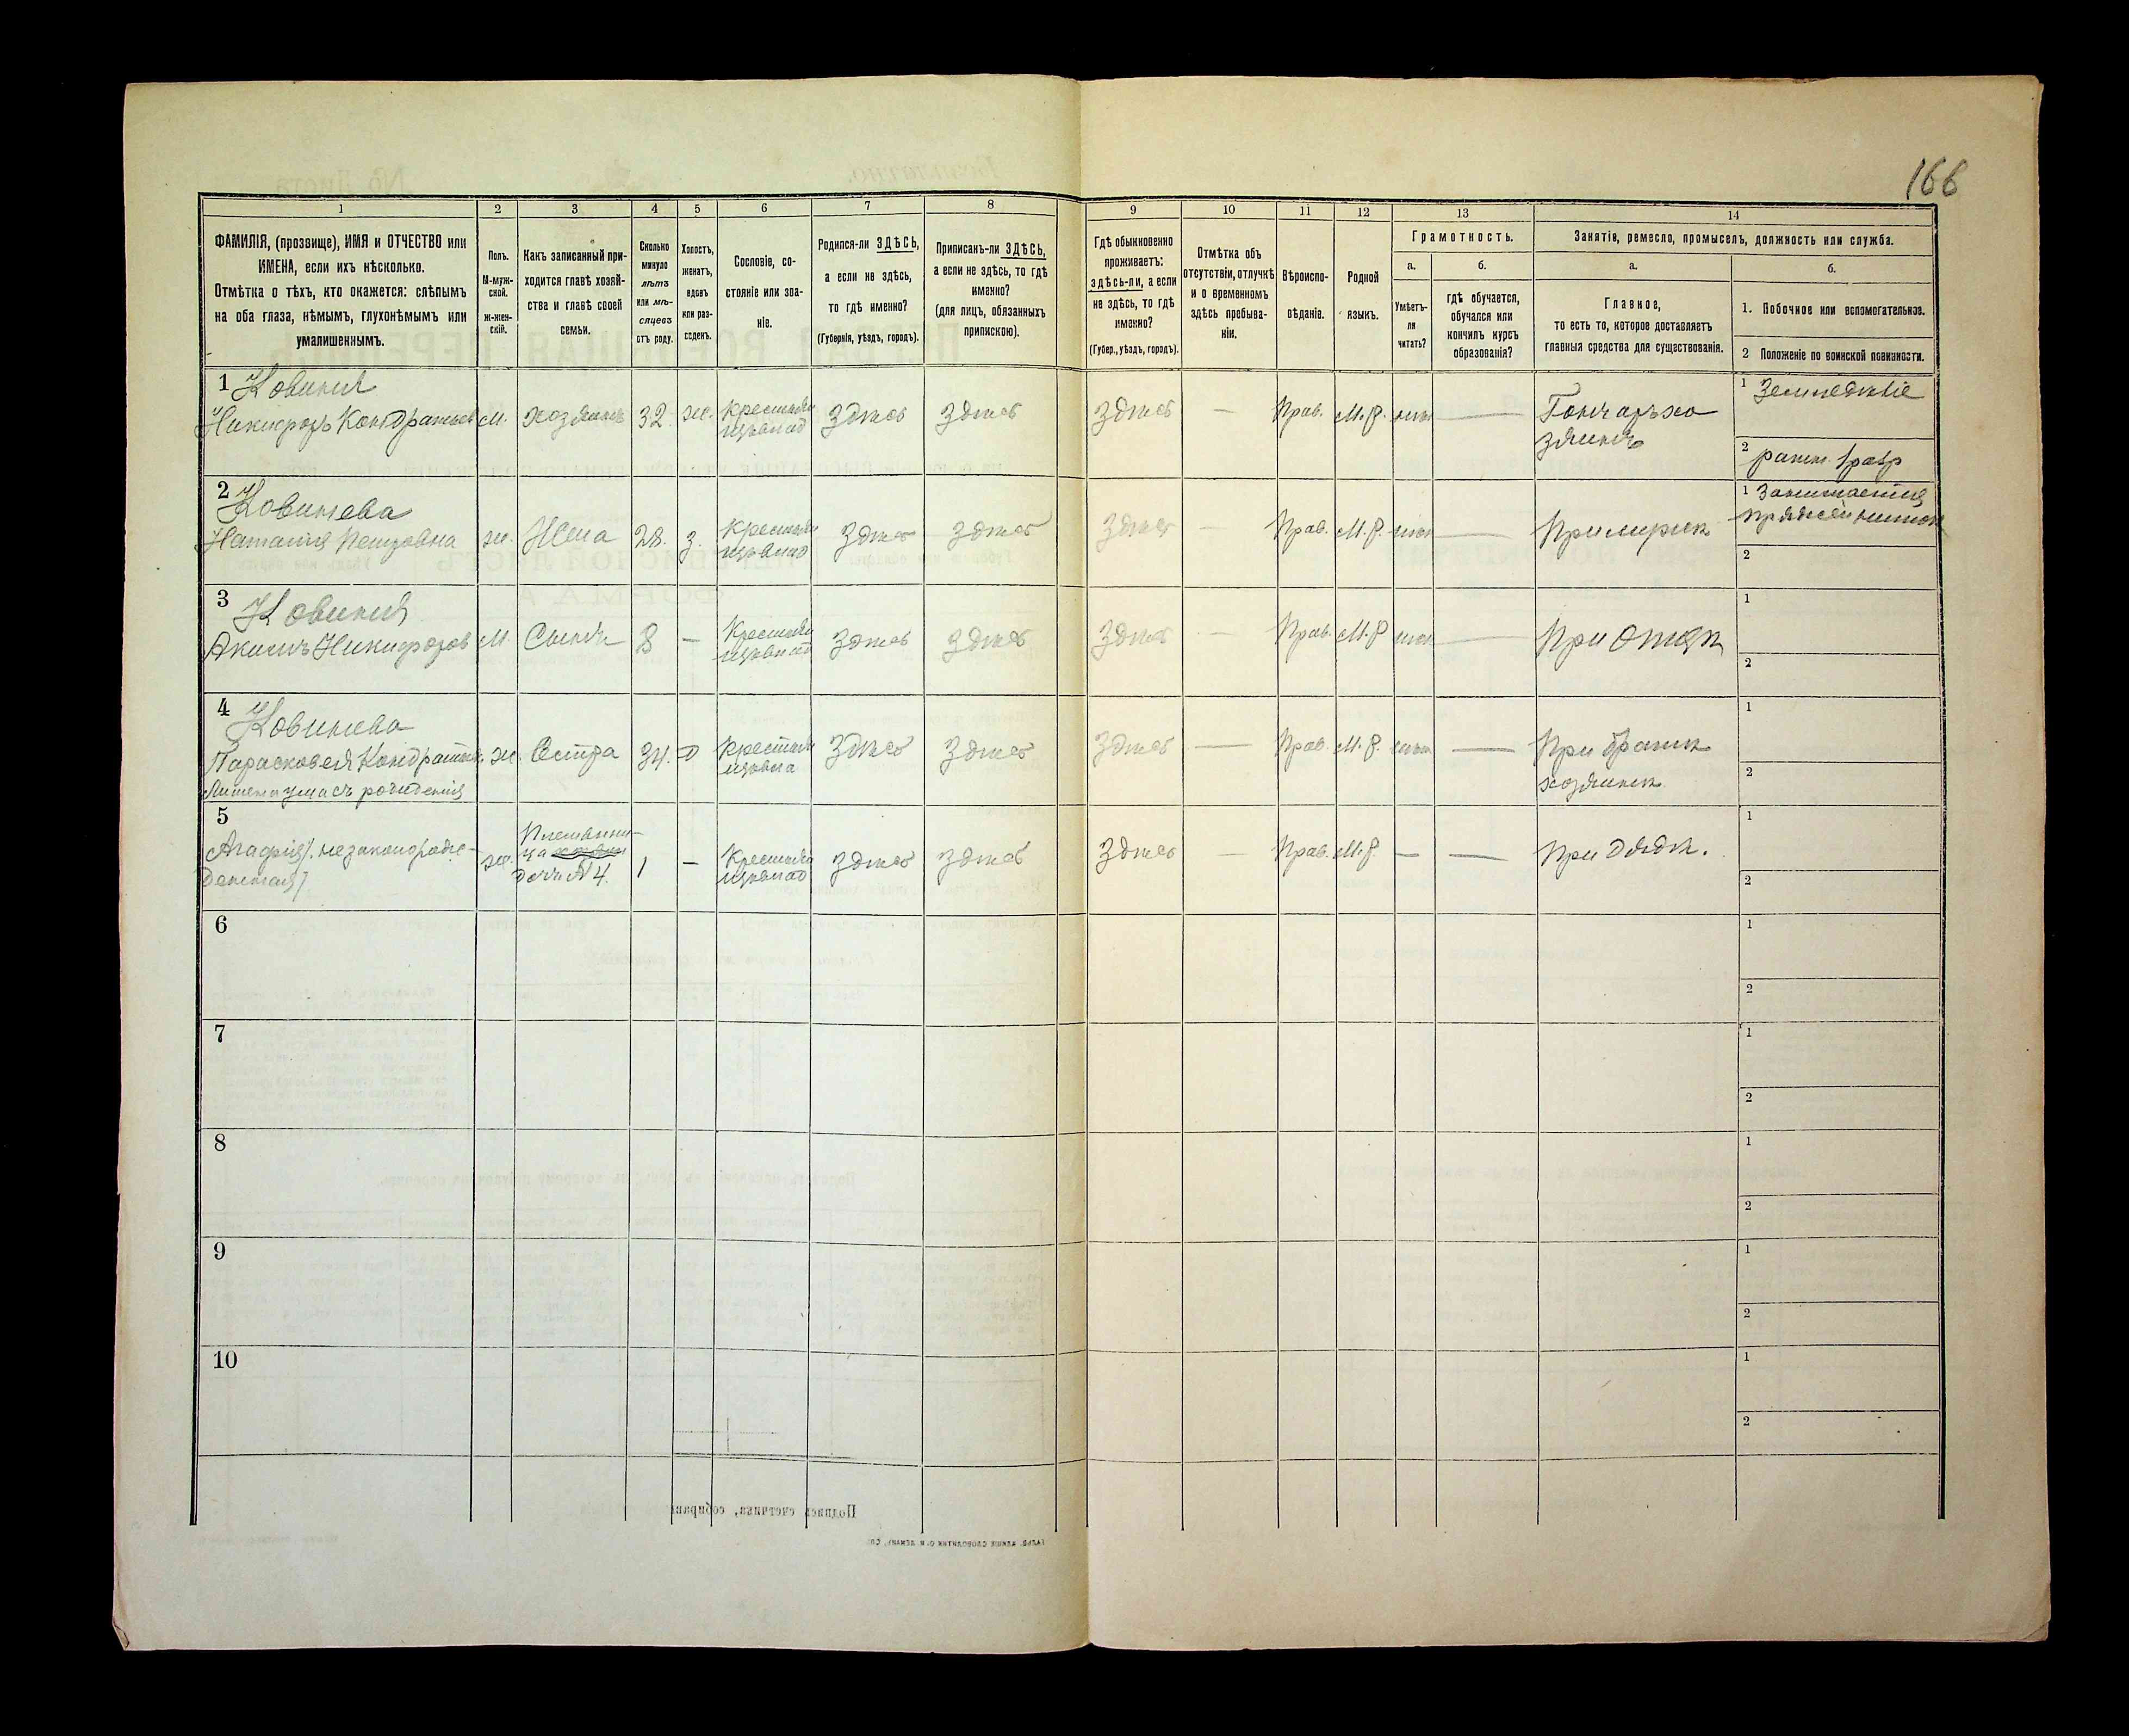 166
1
2
3
4
5
6
7
8
9
10
11
12
13
14
ФАМИЛІЯ, (прозвище), ИМЯ и ОТЧЕСТВО или
ИМЕНА, если ихъ нѣсколько.
Отмѣтка о тѣхъ, кто окажется: слѣпымъ
на оба глаза, нѣмымъ, глухонѣмымъ или
умалишеннымъ.
Полъ.
М-муж-
ской.
ж-жен-
скій.
Какъ записанный при-
ходится главѣ хозяй-
ства и главѣ своей
семьи.
Сколько
минуло
лѣтъ
или мѣ-
сяцевъ
отъ роду.
Холостъ,
женатъ,
вдовъ
или раз-
веденъ.
Сословіе, со-
стояніе или зва-
ніе.
Родился-ли ЗДѢСЬ,
а если не здѣсь,
то гдѣ именно?
(Губернія, уѣздъ, городъ).
Приписанъ-ли ЗДѢСЬ,
а если не здѣсь, то гдѣ
именно?
(для лицъ, обязанныхъ
припискою).
Гдѣ обыкновенно
проживаетъ:
здѣсь-ли, а если
не здѣсь, то гдѣ
именно?
(Губер., уѣздъ, городъ).
Отмѣтка объ
отсутствіи, отлучкѣ
и о временномъ
здѣсь пребыва-
ніи.
Вѣроиспо-
вѣданіе.
Родной
языкъ.
Грамотность.
а.
Умѣетъ-
ли
читать?
б.
гдѣ обучается,
обучался или
кончилъ курсъ
образованія?
Занятіе, ремесло, промыселъ, должность или служба.
а.
Главное,
то есть то, которое доставляетъ
главныя средства для существованія.
б.
1. Побочное или вспомогательное.
2 Положеніе по воинской повинности.
1
Никифоръ Кондратьев м. хозяинъ 32 ж. здѣсь здѣсь здѣсь — Прав. М.Р. нѣт — Гончаръ хо
зяинъ
1 Земледѣліе
2
2
Наталия Петровна ж. Жена 28. з. здѣсь здѣсь здѣсь — Прав. М.Р. нѣт — При мужѣ
1 Занимается
пряжей нитокъ
2
3
Акимъ Никифоров м. Сынъ 8 — здѣсь здѣсь здѣсь — Прав. М.Р нѣт — При отцѣ
1
2
4
Парасковея Кондратьев. ж. Сестра 34. здѣсь здѣсь здѣсь — Прав. М.Р. нѣт — При братѣ
хозяинѣ
Лишена ума съ рожденія
1
2
5
Агафия [незаконорож-
денная]
Племянни-
ца
дочь №4.
ж. 1 — здѣсь здѣсь здѣсь — Прав. М.Р. — — При дядѣ.
1
2
6
1
2
7
1
2
8
1
2
9
1
2
10
1
2